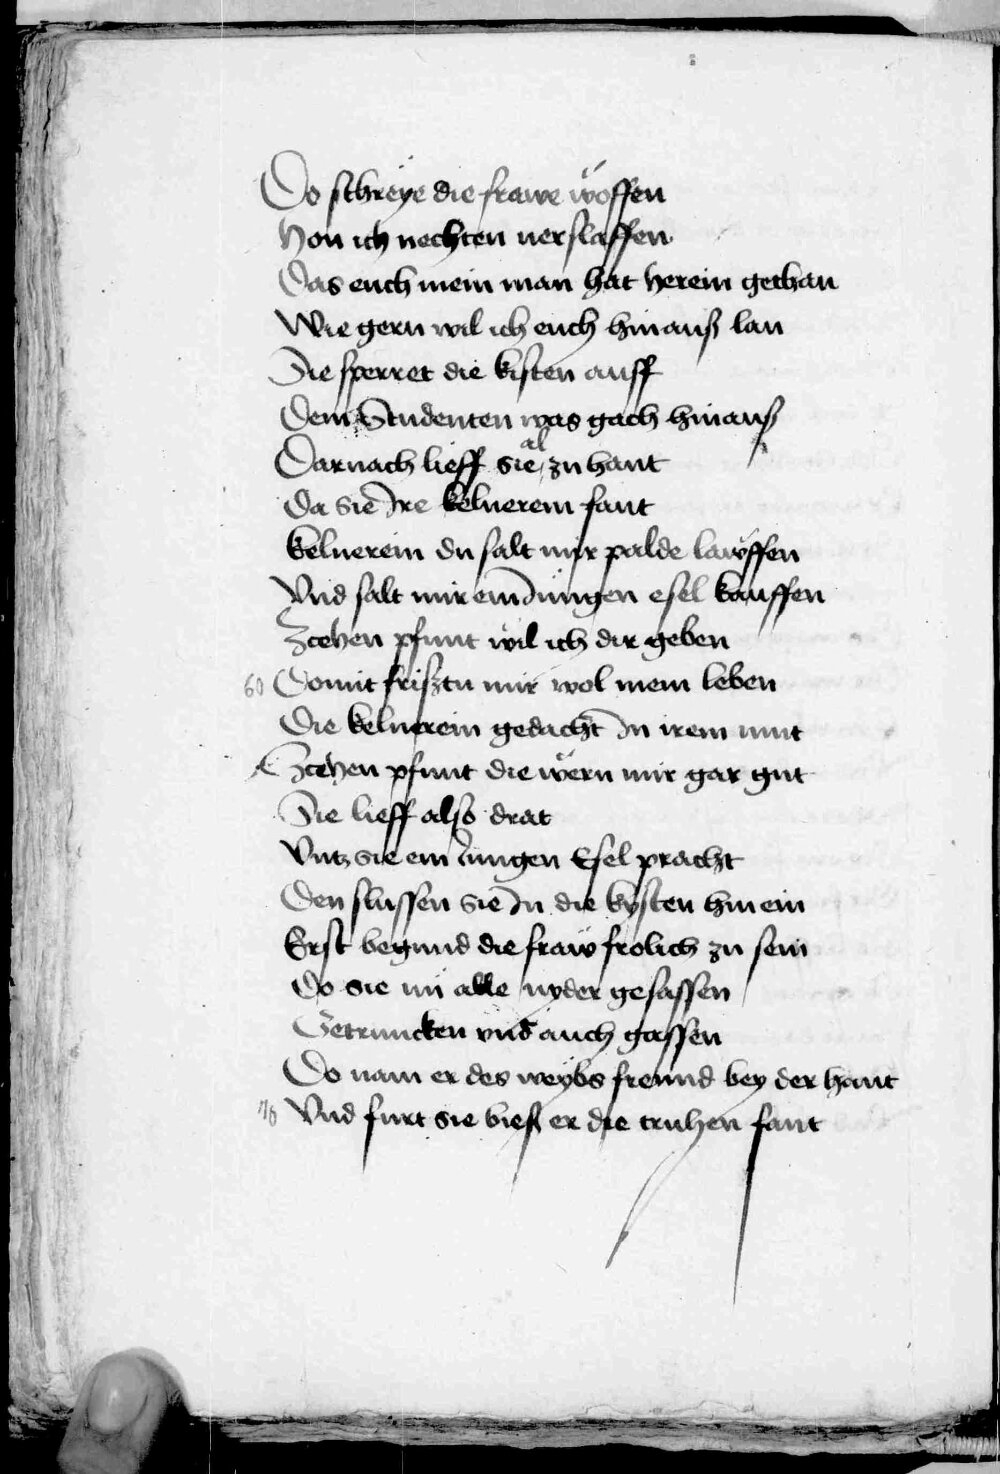 Do schreÿe die frawe woffen
Hon ich nechten uerslaffen
Das euch mein man hat herein gethan
Wie gern wil ich euch hinauß lan
Sie sperret die kisten auff
Dem Studenten was gach hinauß
Darnach lieff sie al zu hant
Da sie Ire kelnerein fant
kelnerein du salt mir palde lawffen
Vnd salt mir ein Jungen esel kauffen
Zcehen pfunt wil ich dir geben
60 Domit frisztu mir wol mein leben
Die kelnerein gedacht In irem mut
Zcehen pfunt die wern mir gar gut
Sie lieff also drat
Vntz sie ein Jungen Esel pracht
Den slussen sie In die kysten hinein
Erst begund die fraw frolich zu sein
Do sie nü alle nyder gesassen
Getruncken vnd auch gassen
Do nam er des weÿbs freund bey der hant
70 Vnd furt sie bieß er die truhen fant